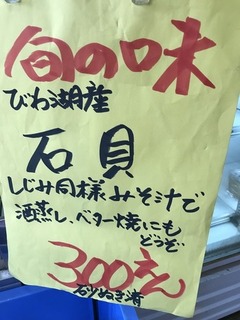 旬の味
びわ湖産
石貝
しじみ同様みそ汁で
酒蒸し、ベター焼にも
どうぞ
300えん
砂ぬき済